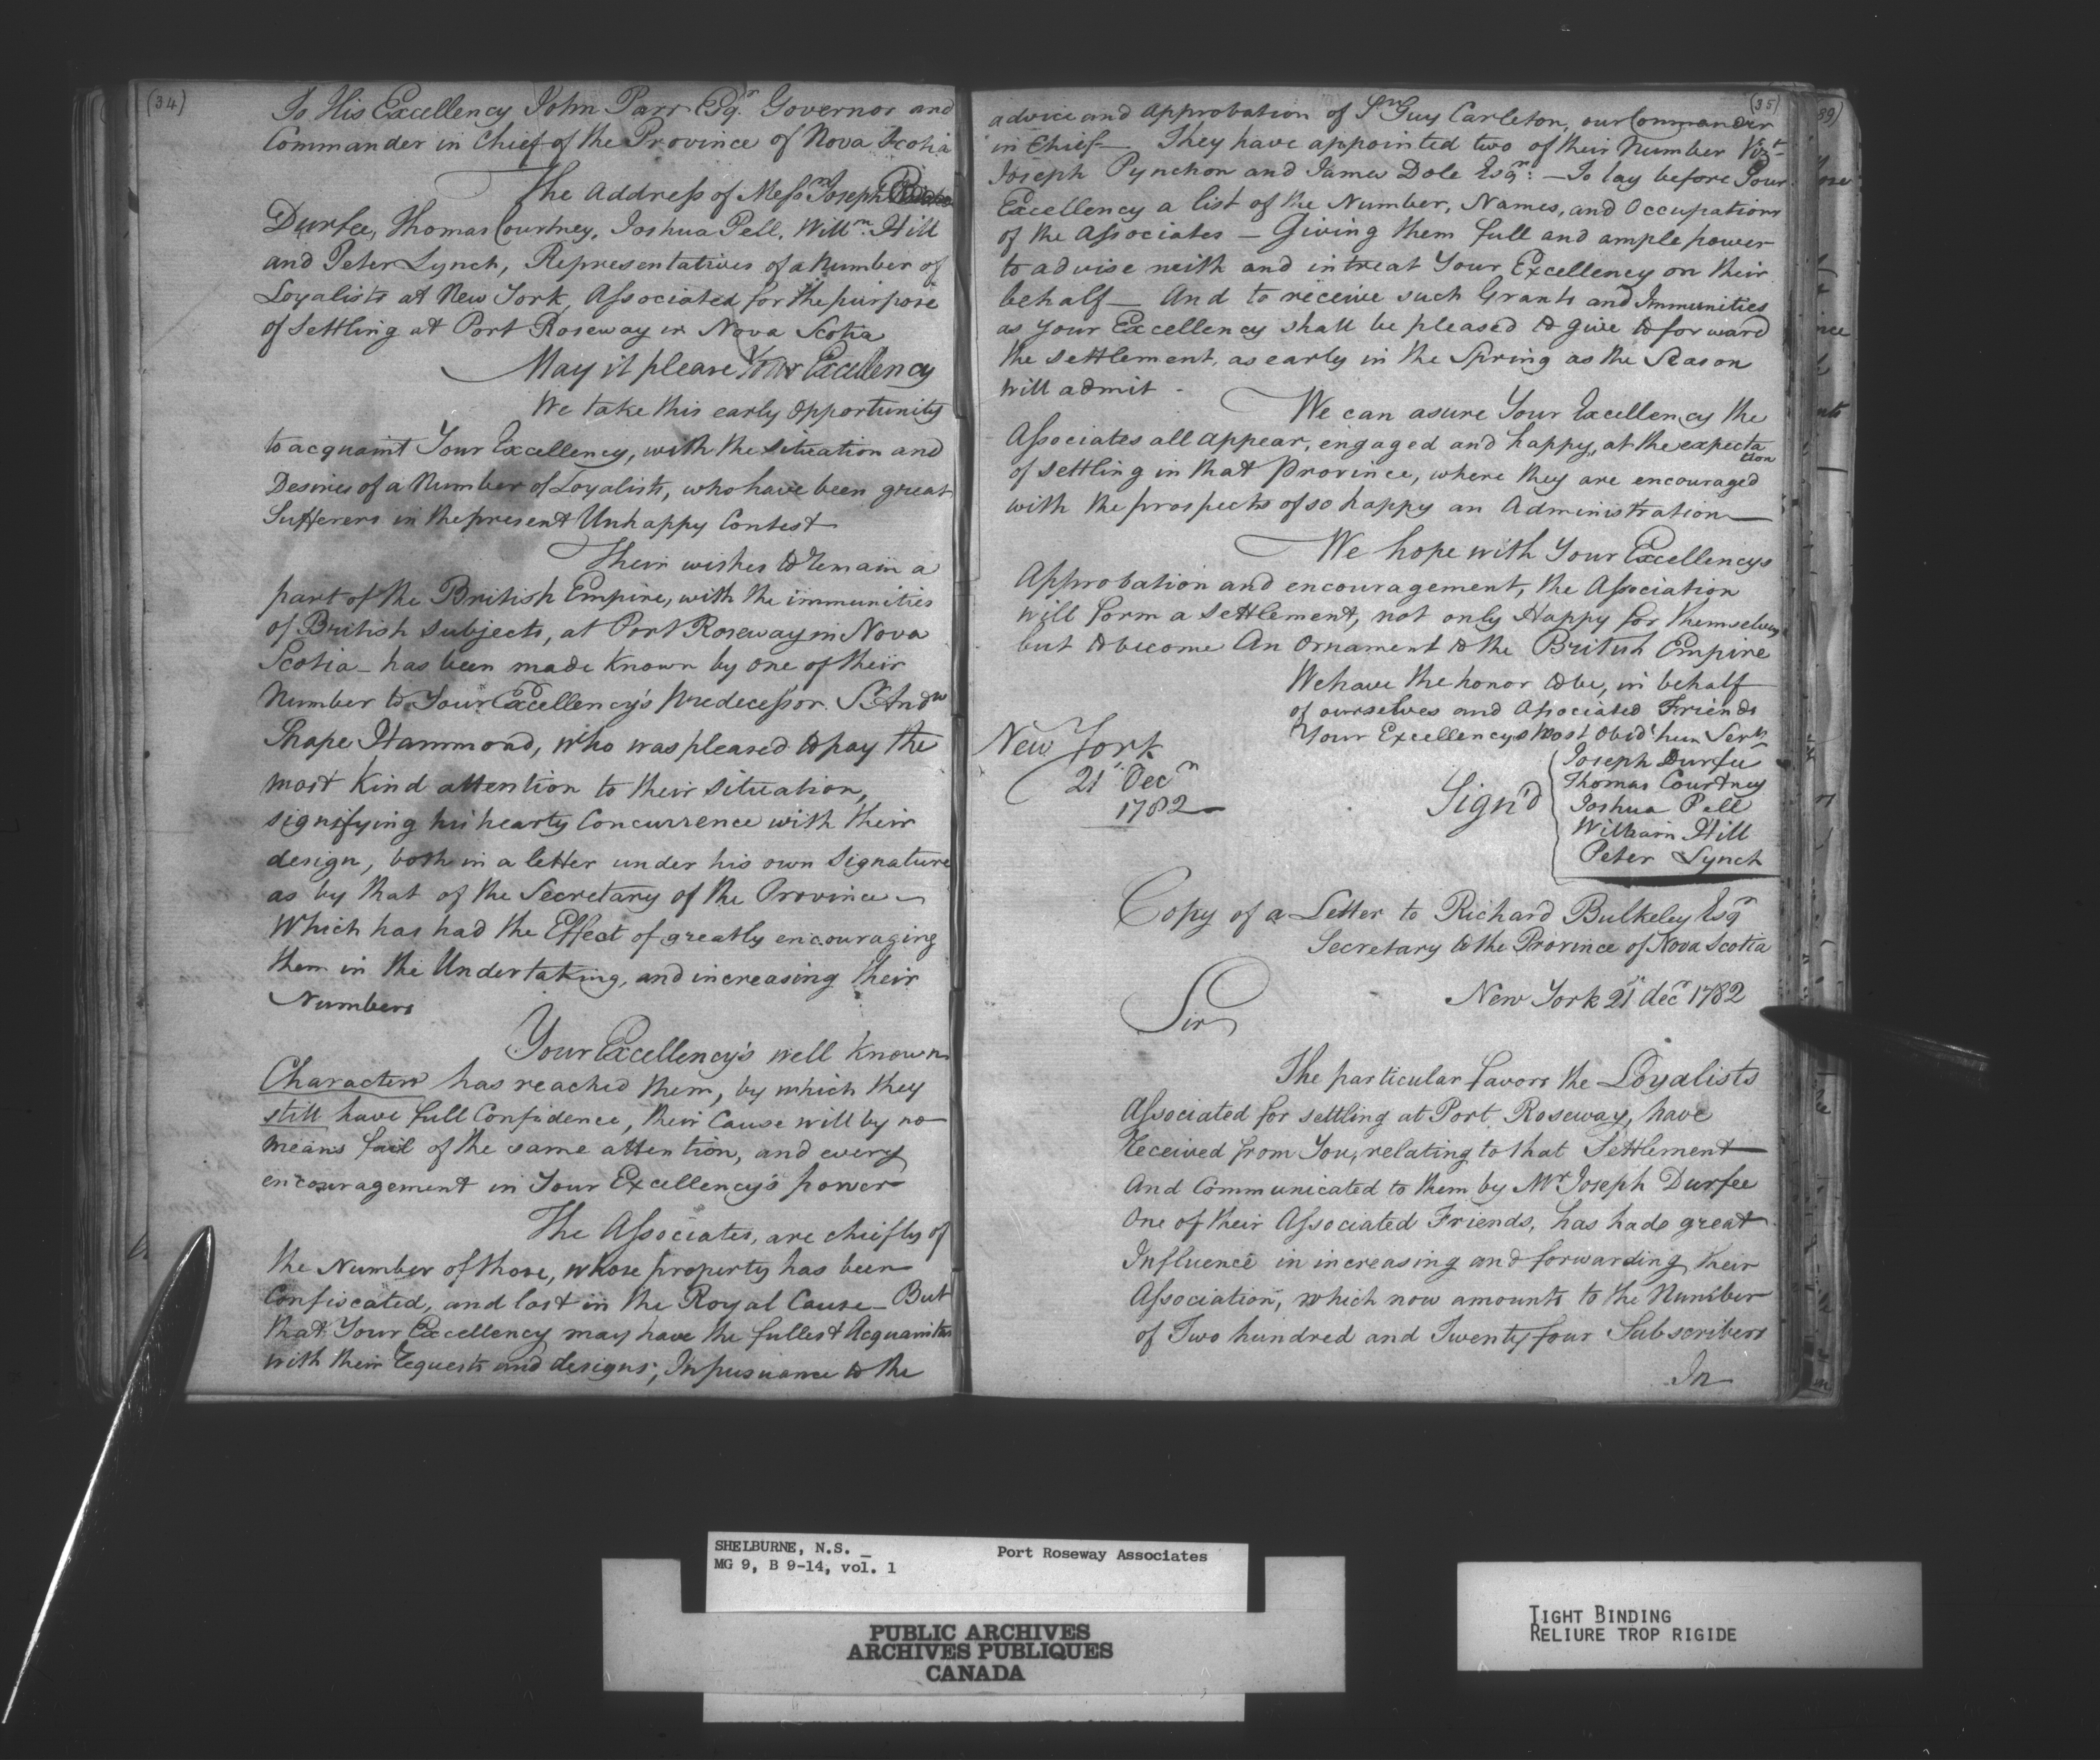 (34)
To His Excellency John Parr Esqr. Governor and
Commander in Chief of the Province of Nova Scotia
The Address of Messrs Joseph
Durfee, Thomas Courtney, Joshua Pell, Willm. Hill
and Peter Lynch, Representatives of a Number of
Loyalists at New York, Associated for the purpose
of Settling at Port Roseway in Nova Scotia
May it please Your Excellency
We take this early opportunity
to acquaint Your Excellency, with the situation and
Desires of a Number of Loyalists, who have been great
Sufferers in the present Unhappy Contest
Their wishes to remain a
part of the British Empire, with the immunities
of British Subjects, at Port Roseway in Nova
Scotia - has been made known by one of their
Number to Your Excellency's predecessor Sr. Andw
Shape Hammond, who was pleased to pay the
most kind attention to their situation,
signifying his hearty Concurrence with their
design, both in a letter under his own Signature
as by that of the Secretary of the Province -
Which has had the Effect of greatly encouraging
them in the Undertaking, and increasing their
Numbers
Your Excellency's well known
Character has reached them, by which they
still have full Confidence, their Cause will by no
means fail of the same attention, and every
encouragement in Your Excellency's power
The Associates, are chiefly of
the Number of those, whose property has been
Confiscated, and lost in the Royal Cause - But
that Your Excellency may have the fullest
with their Requests and designs; In pursuance to the
(35)
advice and Approbation of Sr Guy Carleton, our Commander
in Chief - They have appointed two of their Number Vizt-
Joseph Pynchon and James Dole Esqr: - To lay before Your
Excellency a list of the Number, Names, and Occupations
of the Associates - Giving them full and ample power
to advise with and intreat Your Excellency on their
behalf - And to receive such Grants and Immunities
as Your Excellency shall be pleased to give to forward
the settlement, as early in the Spring as the Season
will admit -
We can asure Your Excellency the
Associates all appear, engaged and happy, at the expecta
tion
of settling in that Province, where they are encouraged
with the prospects of so happy an Administration
We hope with Your Excellencys
Approbation and encouragement, the Association
will form a settlement, not only Happy for themselves
but to become An Ornament to the British Empire
We have the honor to be, in behalf
of ourselves and Associated Friends
Your Excellencys Most Obedt hum Servts
New York
21st Decr
1782
Sign'd
Joseph Durfee
Thomas Courtney
Joshua Pell
William Hill
Peter Lynch
Copy of a Letter to Richard Bulkeley Esqr
Secretary to the Province of Nova Scotia
New York 21st decr 1782
Sir
The particular favors the Loyalists
Associated for settling at Port Roseway, have
received from You, relating to that Settlement
And Communicated to them by Mr Joseph Durfee
One of their Associated Friends, has hade great
Influence in increasing and forwarding their
Association, which now amounts to the Number
of Two hundred and Twenty four Subscribers
In
89)
SHELBURNE, N.S. _
MG 9, B 9-14, vol. 1
Port Roseway Associates
PUBLIC ARCHIVES
ARCHIVES PUBLIQUES
CANADA
TIGHT BINDING
RELIURE TROP RIGIDE